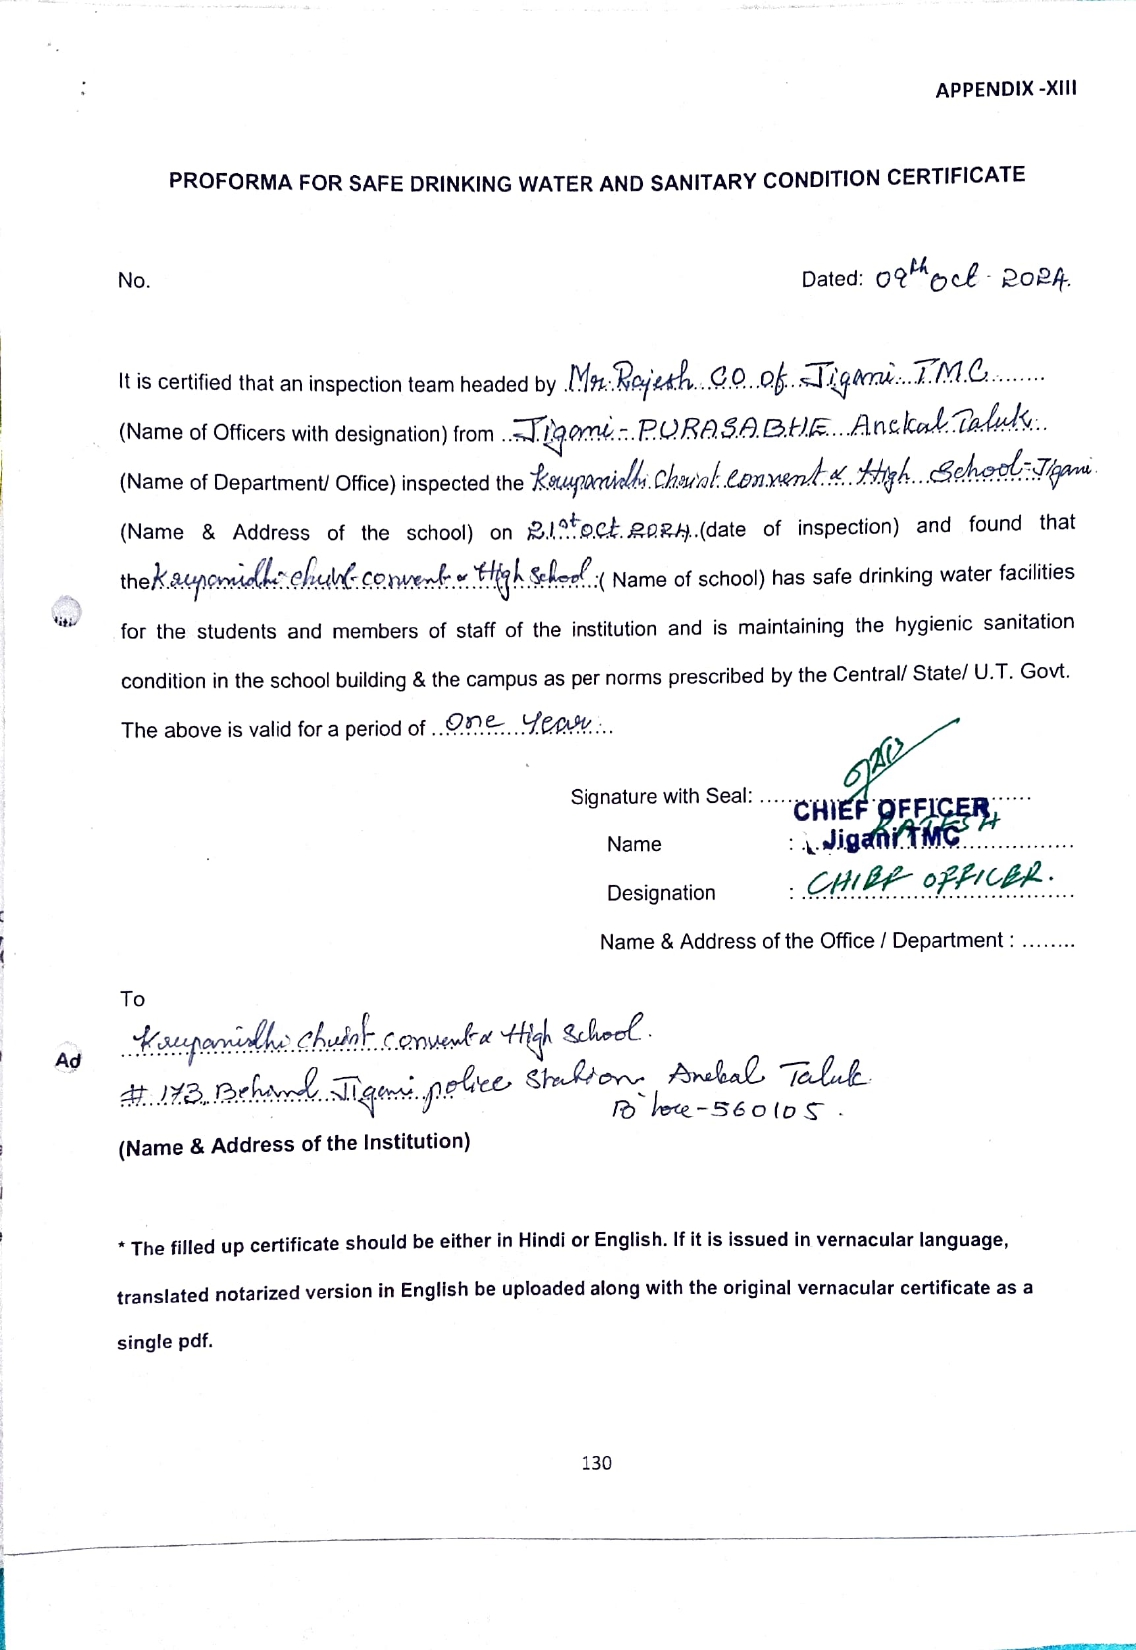 APPENDIX -XIII
PROFORMA FOR SAFE DRINKING WATER AND SANITARY CONDITION CERTIFICATE
No. Dated: 09th Oct - 2024.
It is certified that an inspection team headed by Mr. Rajesh CO of Jigani TMC
(Name of Officers with designation) from Jigani - PURASABHE Anekal Taluk
(Name of Department/ Office) inspected the Krupanidhi Christ convent & High School - Jigani
(Name & Address of the school) on 21st Oct 2024 (date of inspection) and found that
the Krupanidhi Christ convent & High School ( Name of school) has safe drinking water facilities
for the students and members of staff of the institution and is maintaining the hygienic sanitation
condition in the school building & the campus as per norms prescribed by the Central/ State/ U.T. Govt.
The above is valid for a period of One Year
Signature with Seal:
CHIEF OFFICER
Name : RAJESH
Jigani TMC
Designation : CHIEF OFFICER.
Name & Address of the Office / Department : ........
To
Krupanidhi Christ convent & High School.
Ad
# 173 Behind Jigani police Station Anekal Taluk
B'lore - 560105.
(Name & Address of the Institution)
* The filled up certificate should be either in Hindi or English. If it is issued in vernacular language,
translated notarized version in English be uploaded along with the original vernacular certificate as a
single pdf.
130